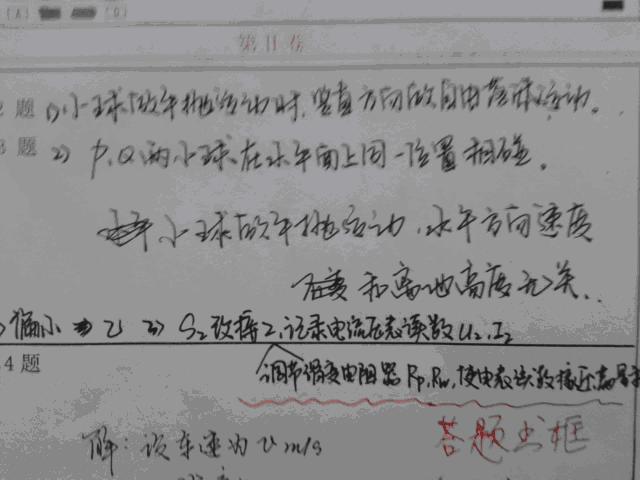 [A] [D]
第II卷
2题 1)小球做平抛运动时,竖直方向做自由落体运动。
3题 2) P,Q两小球在水平面上同一位置相碰。
小球做平抛运动,水平方向速度
和离地高度无关.
偏小 2) S₂改接2,记录电流压表读数U₂,I₂
4题
调节滑变电阻器Rp,Rw,使电表读数接近
答题出框
解:设车速为v m/s